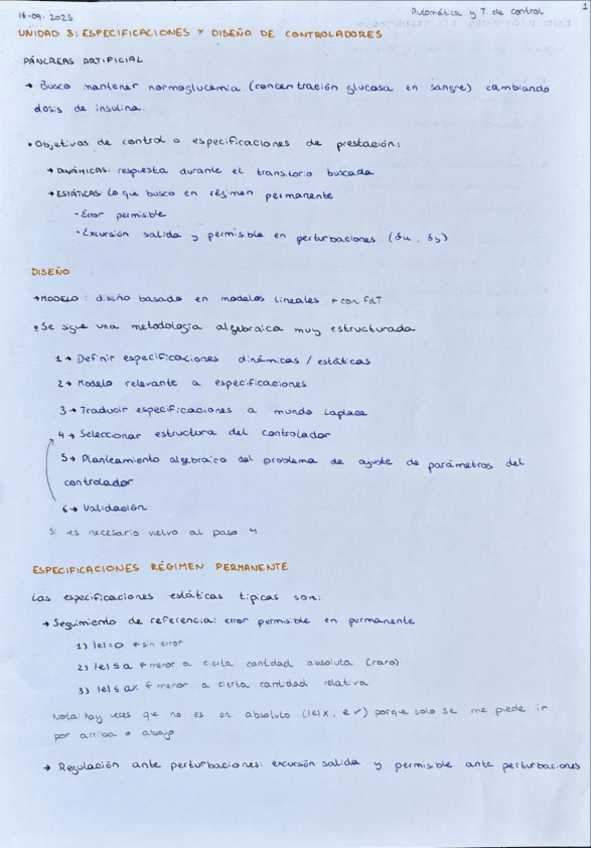 16-09-2025
Automática y T. de control
1
UNIDAD 3: ESPECIFICACIONES Y DISEÑO DE CONTROLADORES
PÁNCREAS ARTIFICIAL
→ Busco mantener normoglucemia (concentración glucosa en sangre) cambiando
dosis de insulina.
• Objetivos de control o especificaciones de prestación:
→ DINÁMICAS: respuesta durante el transitorio buscada
→ ESTÁTICAS: Lo que busco en régimen permanente
- Error permisible
- Excursión salida y permisible en perturbaciones (δu, δy)
DISEÑO
→ MODELO: diseño basado en modelos lineales ← con FdT
• Se sigue una metodología algebraica muy estructurada
1 → Definir especificaciones dinámicas / estáticas
2 → Modelo relevante a especificaciones
3 → Traducir especificaciones a mundo Laplace
4 → Seleccionar estructura del controlador
5 → Planteamiento algebraico del problema de ajuste de parámetros del
controlador
6 → Validación
Si es necesario vuelvo al paso 4
ESPECIFICACIONES RÉGIMEN PERMANENTE
Las especificaciones estáticas típicas son:
→ Seguimiento de referencia: error permisible en permanente
1) |e|=0 ← sin error
2) |e|≤a ← menor a cierta cantidad absoluta (raro)
3) |e|≤a% ← menor a cierta cantidad relativa
Nota: hay veces que no es en absoluto (|e|x, e✓) porque solo se me puede ir
por arriba o abajo
→ Regulación ante perturbaciones: excursión salida y permisible ante perturbaciones